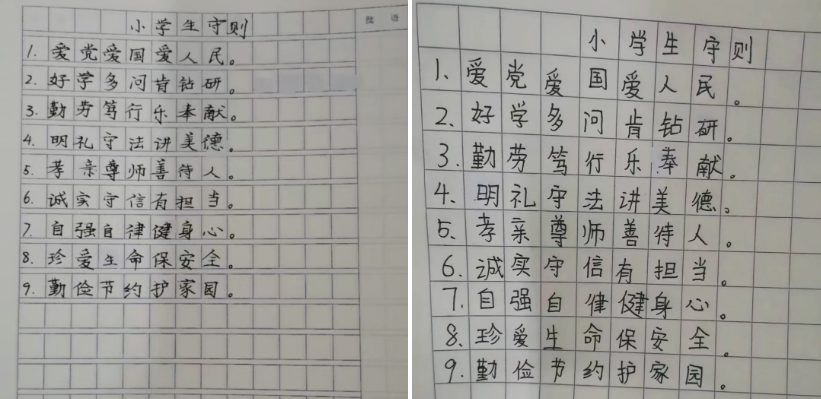 小学生守则
批 语
1. 爱党爱国爱人民。
2. 好学多问肯钻研。
3. 勤劳笃行乐奉献。
4. 明礼守法讲美德。
5. 孝亲尊师善待人。
6. 诚实守信有担当。
7. 自强自律健身心。
8. 珍爱生命保安全。
9. 勤俭节约护家园。
小学生守则
1、爱党爱国爱人民。
2、好学多问肯钻研。
3、勤劳笃行乐奉献。
4、明礼守法讲美德。
5、孝亲尊师善待人。
6、诚实守信有担当。
7、自强自律健身心。
8、珍爱生命保安全。
9、勤俭节约护家园。